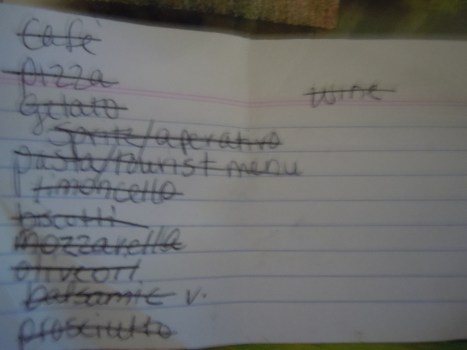 café
pizza
wine
gelato
sprite/aperativo
pasta/tourist menu
limoncello
biscotti
mozzarella
olive oil
balsamic v.
prosciutto